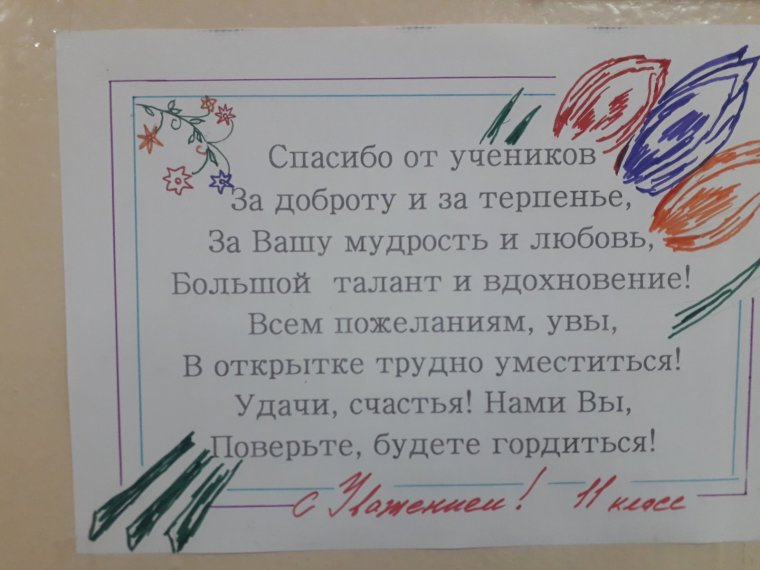 Спасибо от учеников
За доброту и за терпенье,
За Вашу мудрость и любовь,
Большой талант и вдохновение!
Всем пожеланиям, увы,
В открытке трудно уместиться!
Удачи, счастья! Нами Вы,
Поверьте, будете гордиться!
С Уважением! 11 класс